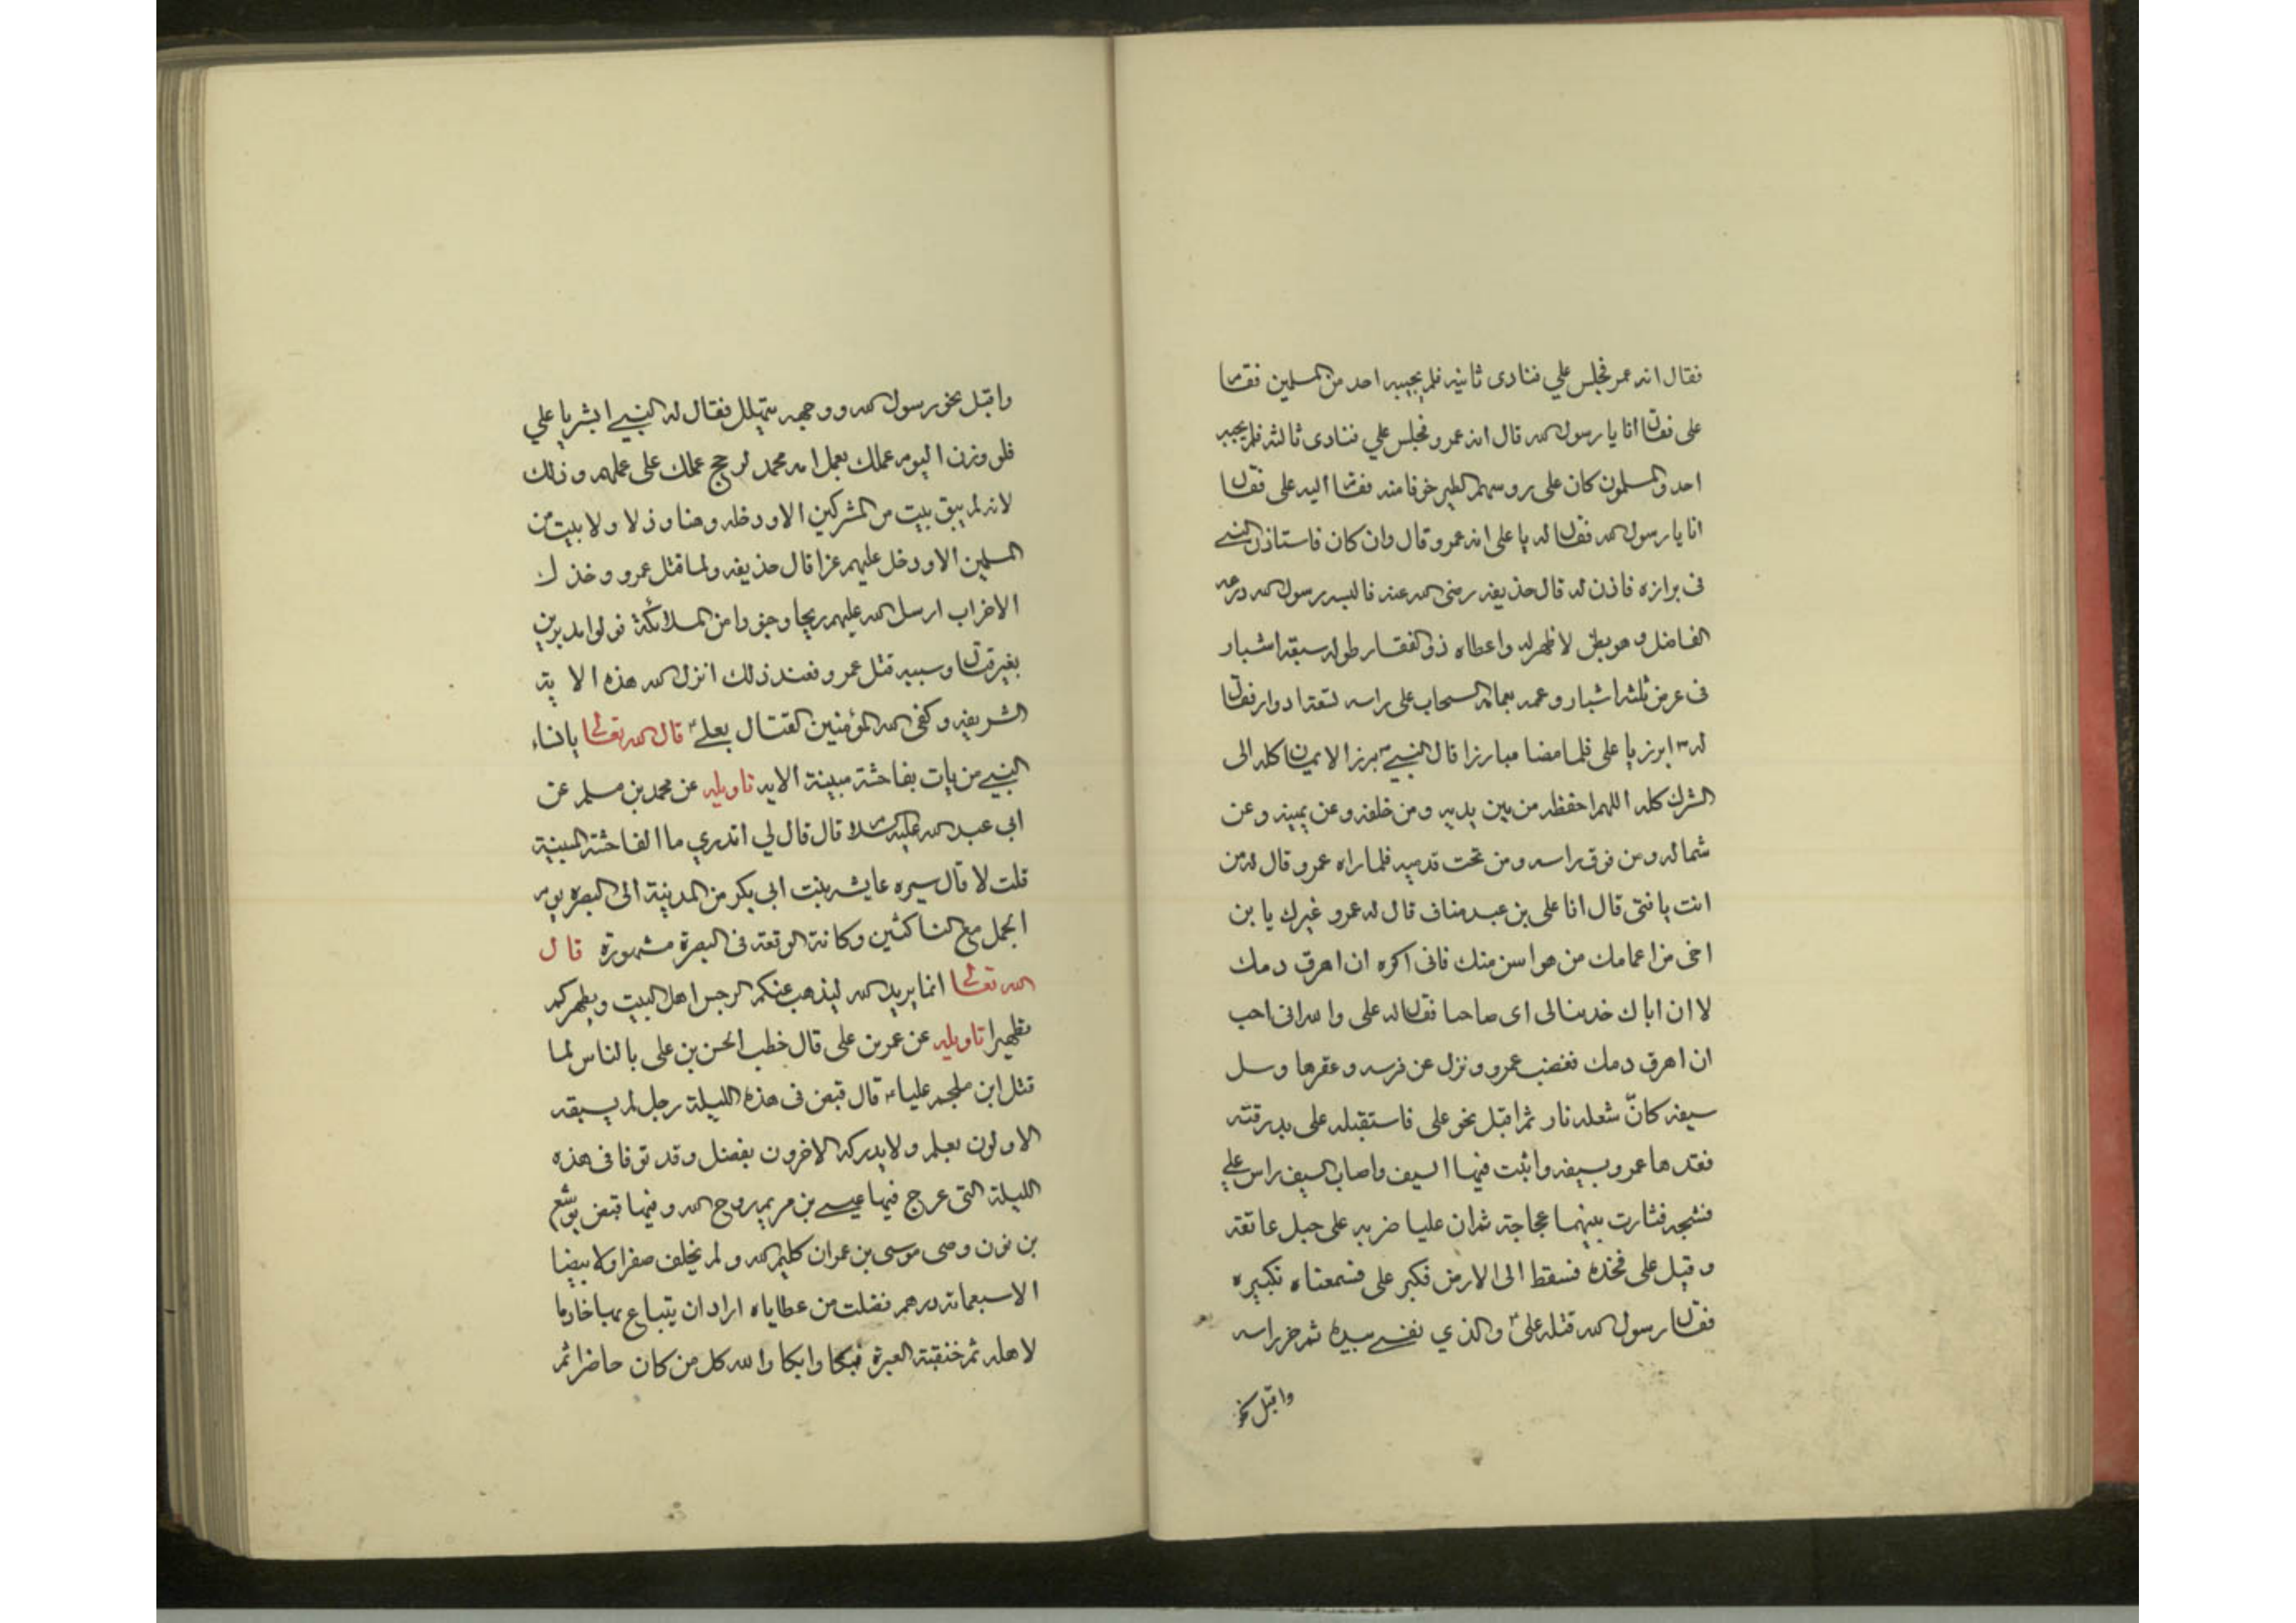 فقال انه عمر فجلس علي فنادى ثانيه فلم يجيبه احد من المسلمين فقام
على فقال انا يا رسول الله قال انه عمرو فجلس علي فنادى ثالثه فلم يجيبه
احد والمسلمون كان على روسهم الطير خوفا منه فقام اليه على فقال
انا يا رسول الله فقال له يا على انه عمرو قال وان كان فاستاذن النبي
فى برازه فاذن له قال حذيفه رضى الله عنه فالبسه رسول الله درعه
الفاضل و هو بطن لا ظهر له واعطاه ذو الفقار طوله سبعة اشبار
فى عرض ثلثه اشبار وعممه بعمامة السحاب على راسه تسعة ادوار فقال
له ابرز يا على فلما مضا مبارزا قال النبي برز الايمان كله الى
الشرك كله اللهم احفظه من بين يديه ومن خلفه وعن يمينه وعن
شماله ومن فوق راسه ومن تحت قدميه فلما راه عمرو قال له من
انت يا فتى قال انا على بن عبد مناف قال له عمرو غيرك يا بن
اخى من اعمامك من هو اسن منك فانى اكره ان اهرق دمك
لا ان اباك خدننا لى اى صاحبا فقال له على والله انى احب
ان اهرق دمك فغضب عمرو ونزل عن فرسه وعقرها وسل
سيفه كانّ شعله نار ثم اقبل نحو على فاستقبله على بدرقته
فقدها عمرو بسيفه واثبت فيها السيف واصاب السيف راس علي
فشجه فثارت بينهما عجاجة ثم ان عليا ضربه على حبل عاتقه
و قيل على فخذه فسقط الى الارض فكبر على فسمعناه تكبيره
فقال رسول الله قتله على والذي نفسي بيده ثم حز راسه
واقبل نحو
واقبل نحو رسول الله ووجهه يتهلل فقال له النبي ابشر يا علي
فلو وزن اليوم عملك بعمل امه محمد لرجح عملك على عملهم وذلك
لانه لم يبق بيت من المشركين الا ودخله وهنا وذلا ولا بيت من
المسلمين الا ودخل عليهم عزا قال حذيفه ولما قتل عمرو وخذل
الاحزاب ارسل الله عليهم ريحا وجنودا من الملائكة فولوا مدبرين
بغير قتال وسببه قتل عمرو فعند ذلك انزل الله هذه الاية
الشريفه وكفى الله المؤمنين القتال بعلي قال الله تعالى يا نساء
النبي من يات بفاحشة مبينة الايه تاويله عن محمد بن مسلم عن
ابى عبد الله عليه السلام قال قال لي اتدري ما الفاحشة المبينة
قلت لا قال سيره عايشه بنت ابي بكر من المدينة الى البصره يوم
الجمل مع الناكثين وكانة الوقعه فى البصرة مشهورة قال
الله تعالى انما يريد الله ليذهب عنكم الرجس اهل البيت ويطهركم
تطهيرا تاويله عن عمر بن على قال خطب الحسن بن على بالناس لما
قتل ابن ملجم عليا قال قبض فى هذه الليلة رجل لم يسبقه
الاولون بعلم ولا يدركه الاخرون بفضل وقد توفا فى هذه
الليلة التى عرج فيها عيسى بن مريم روح الله وفيها قبض يوشع
بن نون وصى موسى بن عمران كليم الله ولم يخلف صفرا ولا بيضا
الا سبعمائة درهم فضلت من عطاياه اراد ان يبتاع بها خادما
لاهله ثم خنقته العبرة فبكا وابكا والله كل من كان حاضرا ثم